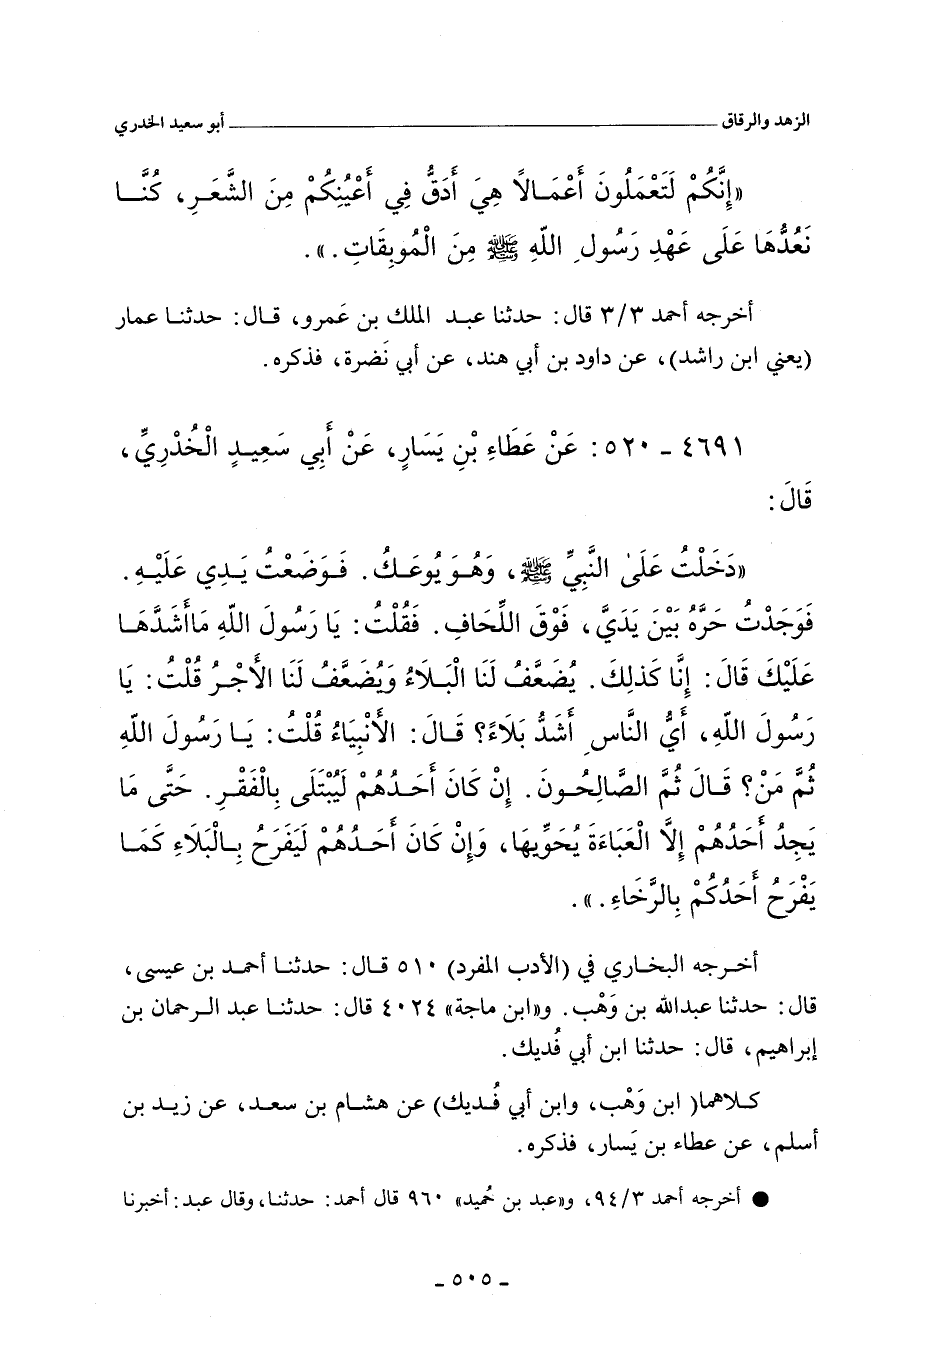 الزهد والرقاق ــــــــــــــــــــ أبو سعيد الخدري
«إِنَّكُمْ لَتَعْمَلُونَ أَعْمَالاً هِيَ أَدَقُّ فِي أَعْيُنِكُمْ مِنَ الشَّعَرِ، كُنَّا
نَعُدُّهَا عَلَى عَهْدِ رَسُولِ اللَّهِ ﷺ مِنَ الْمُوبِقَاتِ.».
أخرجه أحمد ٣/٣ قال: حدثنا عبد الملك بن عَمرو، قال: حدثنا عمار
(يعني ابن راشد)، عن داود بن أبي هند، عن أبي نَضرة، فذكره.
٤٦٩١ - ٥٢٠: عَنْ عَطَاءِ بْنِ يَسَارٍ، عَنْ أَبِي سَعِيدٍ الْخُدْرِيِّ،
قَالَ:
«دَخَلْتُ عَلَى النَّبِيِّ ﷺ، وَهُوَ يُوعَكُ. فَوَضَعْتُ يَدِي عَلَيْهِ.
فَوَجَدْتُ حَرَّهُ بَيْنَ يَدَيَّ، فَوْقَ اللِّحَافِ. فَقُلْتُ: يَا رَسُولَ اللَّهِ مَاأَشَدَّهَا
عَلَيْكَ قَالَ: إِنَّا كَذلِكَ. يُضَعَّفُ لَنَا الْبَلَاءُ وَيُضَعَّفُ لَنَا الأَجْرُ قُلْتُ: يَا
رَسُولَ اللَّهِ، أَيُّ النَّاسِ أَشَدُّ بَلَاءً؟ قَالَ: الأَنْبِيَاءُ قُلْتُ: يَا رَسُولَ اللَّهِ
ثُمَّ مَنْ؟ قَالَ ثُمَّ الصَّالِحُونَ. إِنْ كَانَ أَحَدُهُمْ لَيُبْتَلَى بِالْفَقْرِ. حَتَّى مَا
يَجِدُ أَحَدُهُمْ إِلَّا الْعَبَاءَةَ يُحَوِّيهَا، وَإِنْ كَانَ أَحَدُهُمْ لَيَفْرَحُ بِالْبَلَاءِ كَمَا
يَفْرَحُ أَحَدُكُمْ بِالرَّخَاءِ.».
أخرجه البخاري في (الأدب المفرد) ٥١٠ قال: حدثنا أحمد بن عيسى،
قال: حدثنا عبدالله بن وَهْب. و«ابن ماجة» ٤٠٢٤ قال: حدثنا عبد الرحمان بن
إبراهيم، قال: حدثنا ابن أبي فُديك.
كلاهما( ابن وَهْب، وابن أبي فُديك) عن هشام بن سعد، عن زيد بن
أسلم، عن عطاء بن يَسار، فذكره.
● أخرجه أحمد ٩٤/٣، و«عبد بن حُميد» ٩٦٠ قال أحمد: حدثنا، وقال عبد: أخبرنا
- ٥٠٥ -